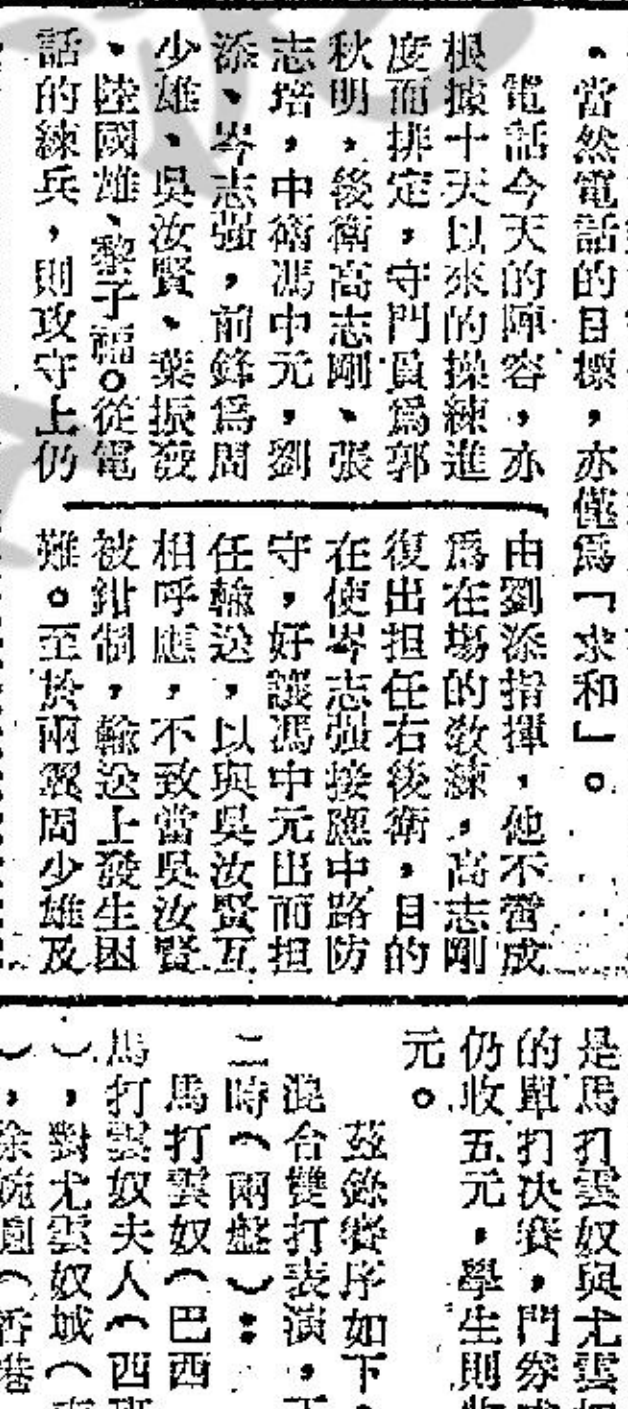 。當然電話的目標，亦僅爲「求和」。
電話今天的陣容，亦
根據十天以來的操練進
度而排定，守門員爲郭
秋明，後衛高志剛、張
志培，中衛馮中元，劉
添、岑志强，前鋒爲周
少雄、吳汝賢、葉振發
、陸國雄、黎子儒。從電
話的練兵，則攻守上仍
由劉添指揮，他不啻成
爲在塲的敎練，高志剛
復出担任右後衛，目的
在使岑志强接應中路防
守，好讓馮中元出而担
任輸送，以與吳汝賢互
相呼應，不致當吳汝賢
被鉗制，輸送上發生困
難。至於兩翼周少雄及
是馬打雲奴與尤雲奴
的單打决賽，門券
仍收五元，學生則收
元。
茲錄賽序如下
混合雙打表演，
二時（兩盤）：
馬打雲奴（巴西
馬打雲奴夫人（西班
），對尤雲奴城（
），徐婉圓（香港